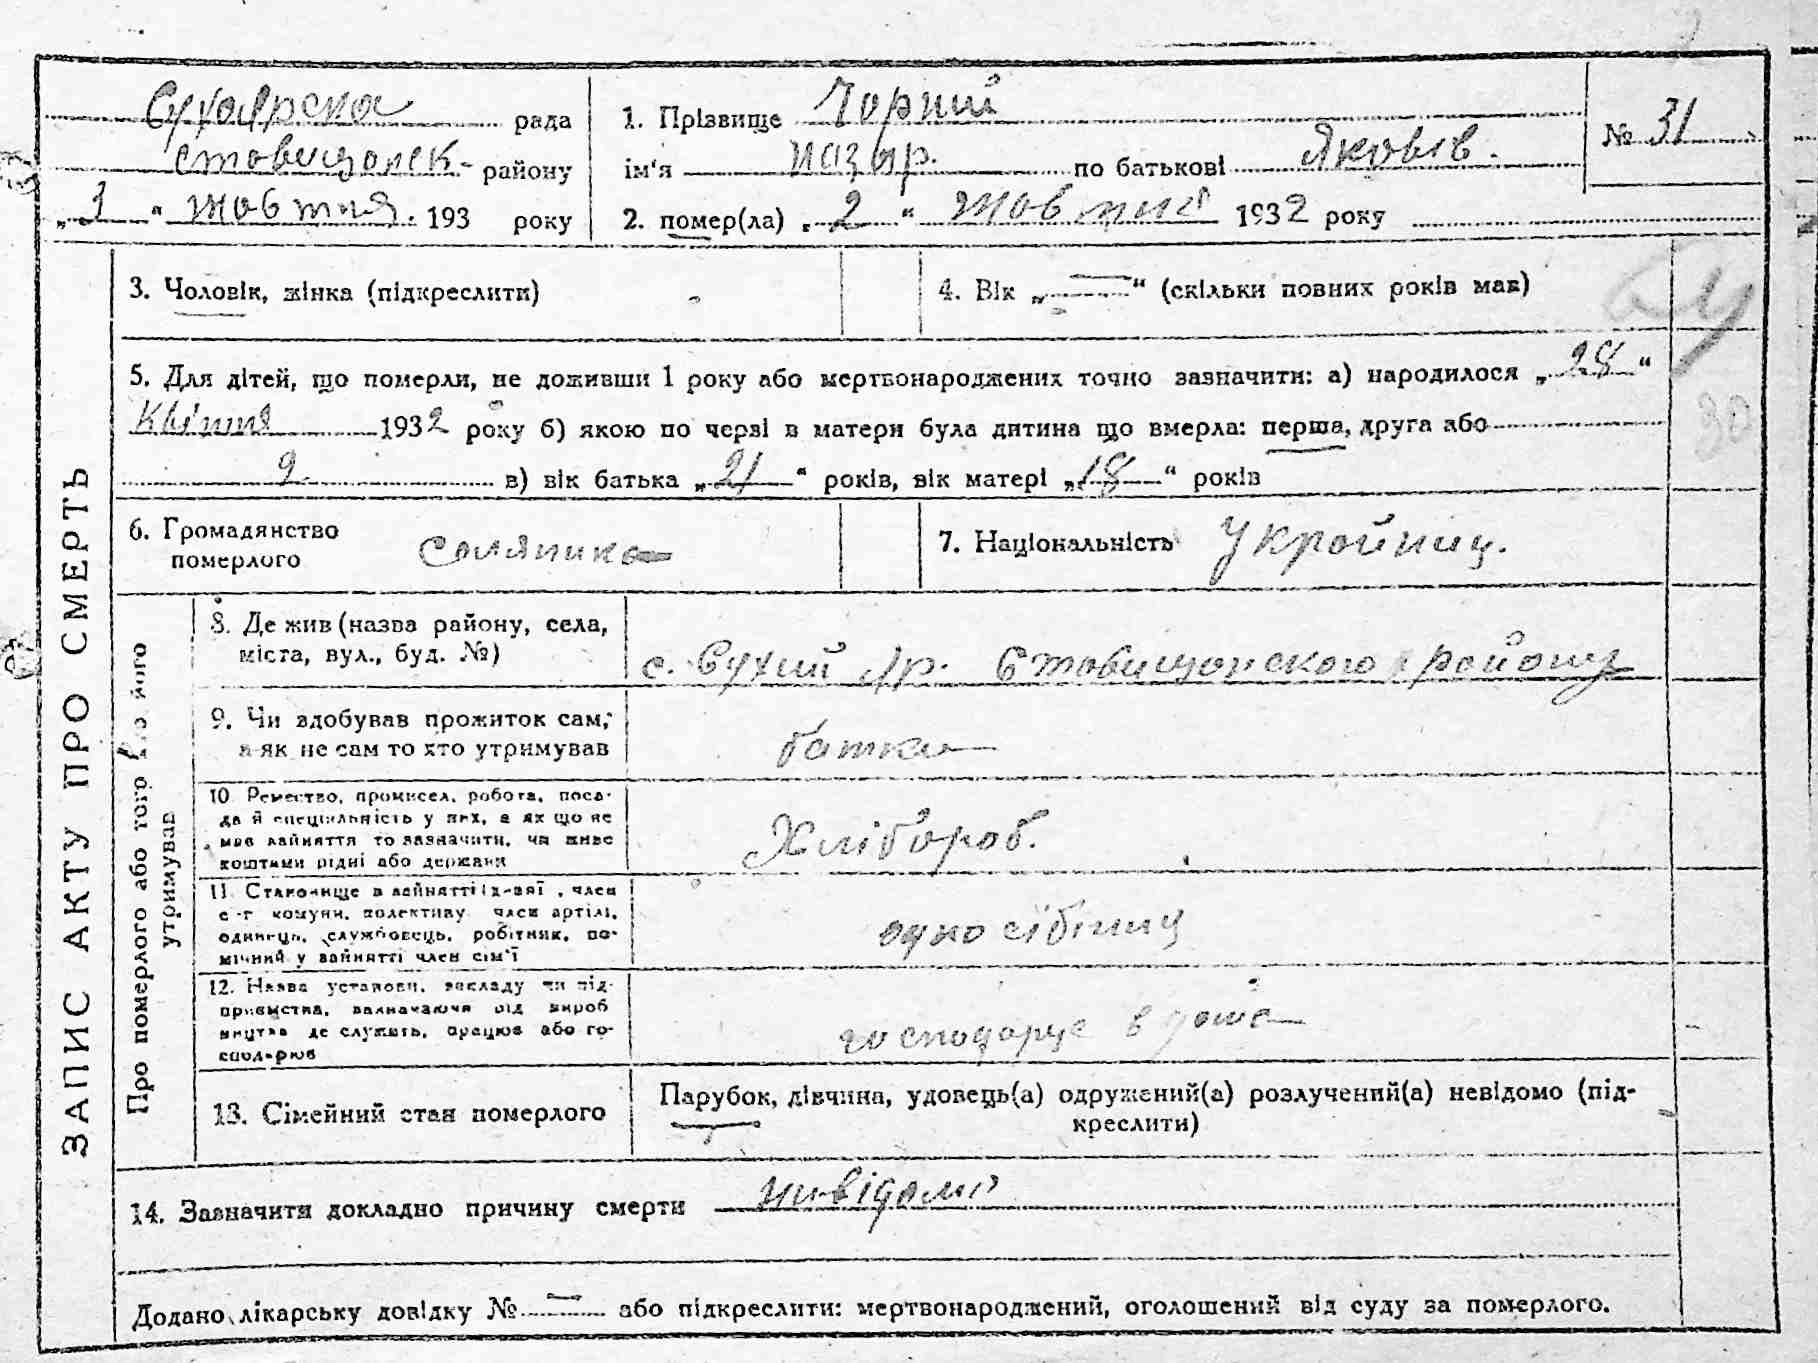 Сухоярска рада
ставищонск- району
„3“ жовтня. 193 року
1. Прізвище Чорний
ім'я назар. по батькові Яковів.
№ 31
2. помер(ла) „2“ жовтня 1932 року
ЗАПИС АКТУ ПРО СМЕРТЬ
3. Чоловік, жінка (підкреслити)
4. Вік „—“ (скільки повних років мав)
5. Для дітей, що померли, не доживши 1 року або мертвонароджених точно зазначити: а) народилося „28“
Квітня 1932 року б) якою по черзі в матери була дитина що вмерла: перша, друга або
2 в) вік батька „21“ років, вік матері „18“ років
30
6. Громадянство
померлого
селянина
7. Національність Україниц.
Про померлого або того хто його
утримував
8. Де жив (назва району, села,
міста, вул., буд. №)
с. Сухий Яр. Ставищонского району
9. Чи здобував прожиток сам,
а як не сам то хто утримував
батко
10. Ремество, промисел, робота, поса-
да й спеціальність у них, а як що не
мав зайняття то зазначити, чи живе
коштами рідні або держави
Хлібороб.
11. Становище в зайнятті член
с-г комуни, колективу член артілі,
одинець, службовець, робітник, по-
мічний у зайнятті член сім'ї
односібниц
12. Назва установи, закладу чи під-
приємства, зазначаючи рід вироб
ництва де служить, працює або го-
сподарює
господарує в дома
13. Сімейний стан померлого
Парубок, дівчина, удовець(а) одружений(а) розлучений(а) невідомо (під-
креслити)
14. Зазначити докладно причину смерти нивідомо
Додано лікарську довідку № — або підкреслити: мертвонароджений, оголошений від суду за померлого.